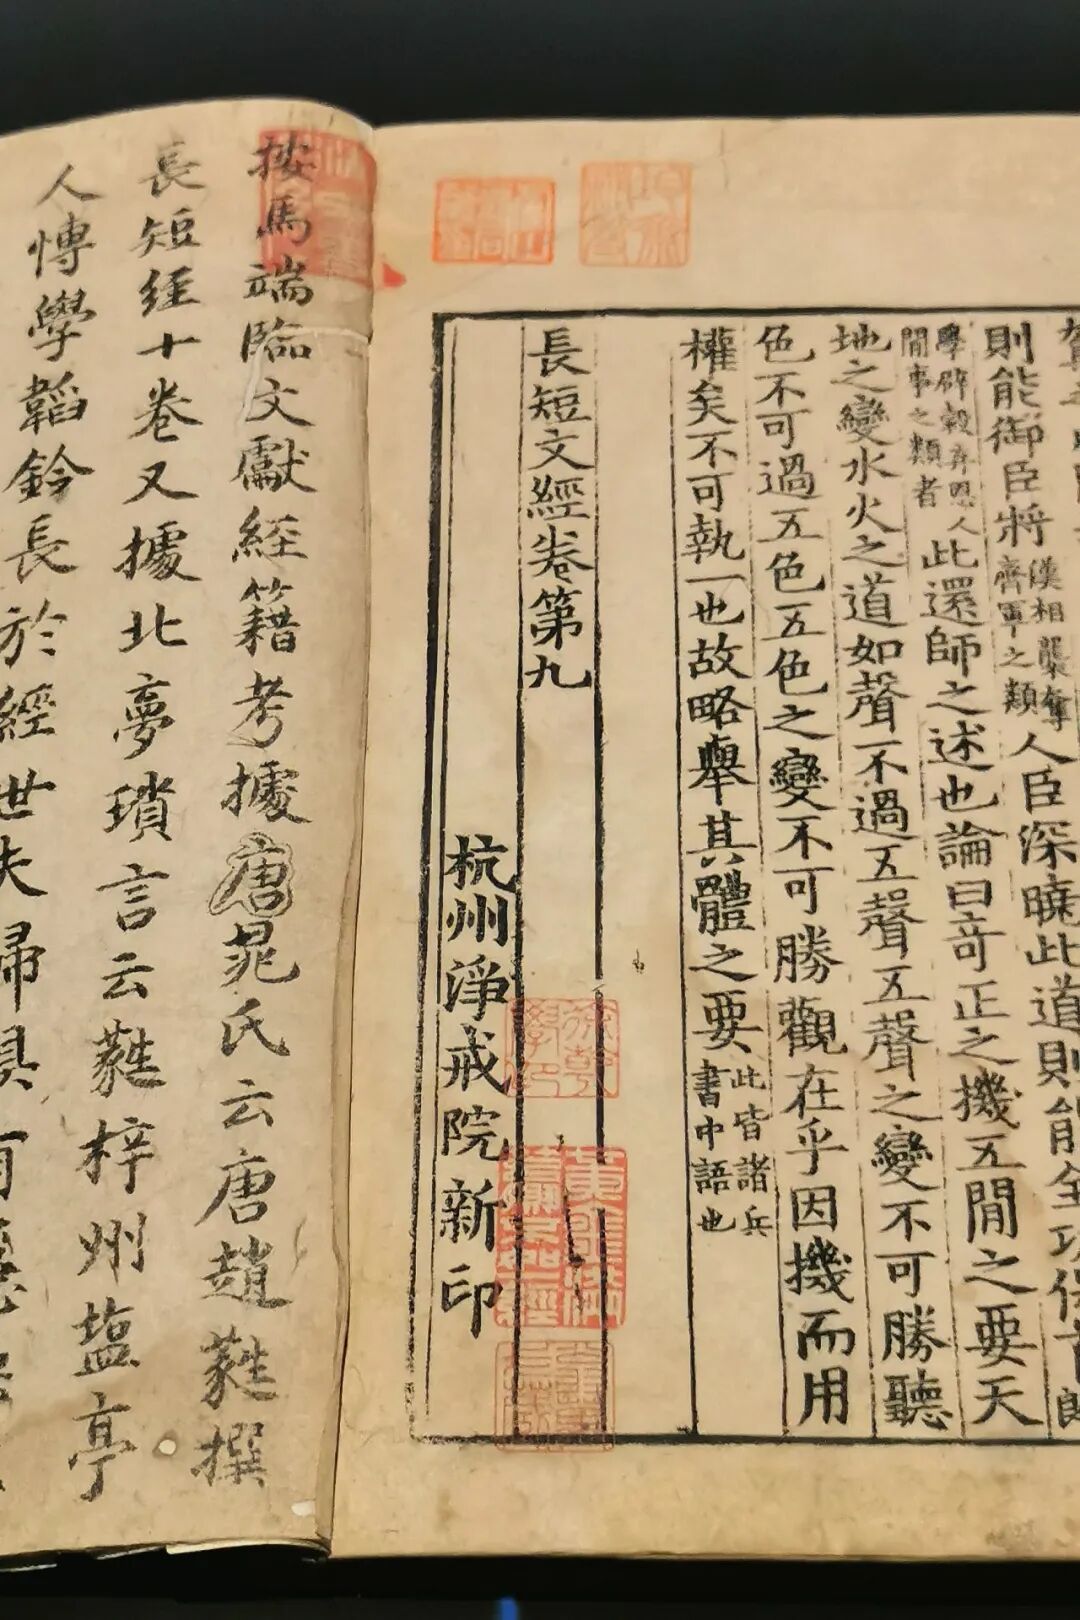 則能御臣將漢相襲奪齊軍之類人臣深曉此道則能全功保首郎
閒事之類者此還師之述也論曰奇正之機五閒之要天
地之變水火之道如聲不過五聲五聲之變不可勝聽
色不可過五色五色之變不可勝觀在乎因機而用
權矣不可執一也故略舉其體之要此皆諸兵書中語也
長短文經卷第九
杭州淨戒院新印
按馬端臨文獻經籍考據唐晁氏云唐趙蕤撰
長短經十卷又據北夢瑣言云蕤梓州鹽亭
人博學韜鈐長於經世夫婦俱有